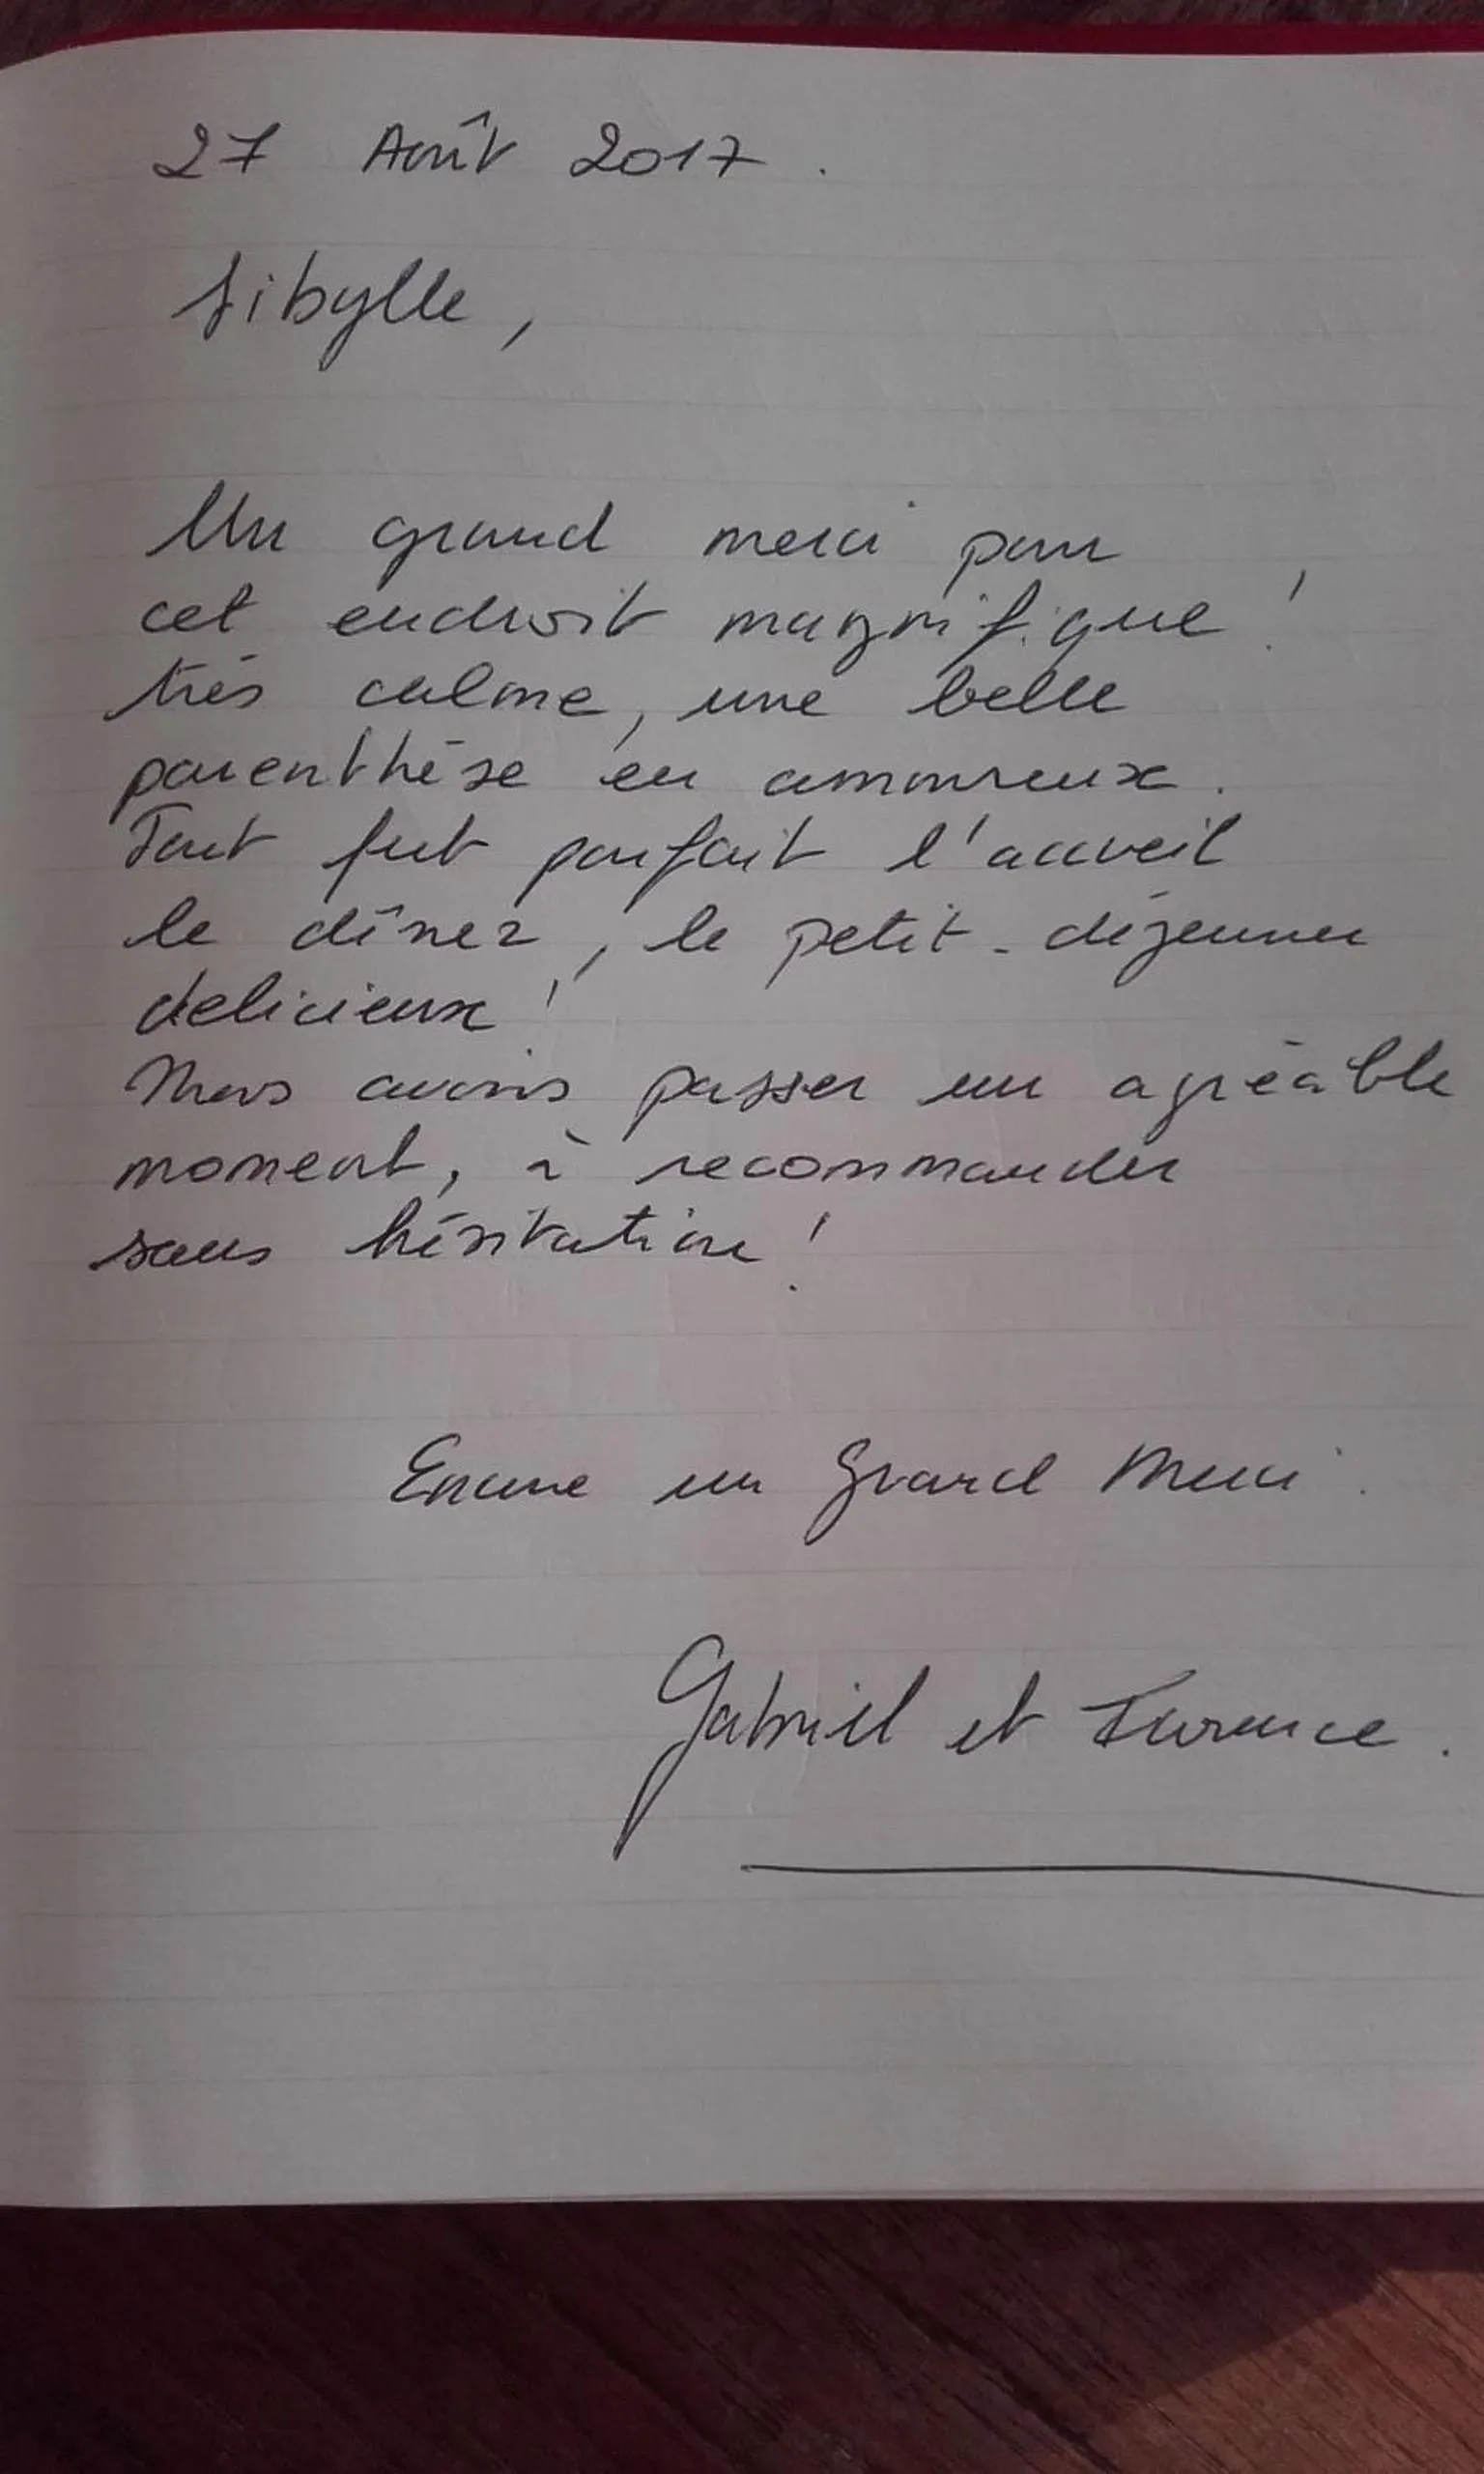 27 Août 2017.
Sibylle,
Un grand merci pour
cet endroit magnifique !
très calme, une belle
parenthèse en amoureux.
Tout fut parfait l'accueil
le dîner, le petit-déjeuner
delicieux !
Nous avons passer un agréable
moment, à recommander
sans hésitation !
Encore un Grand Merci.
Gabriel et Florence.